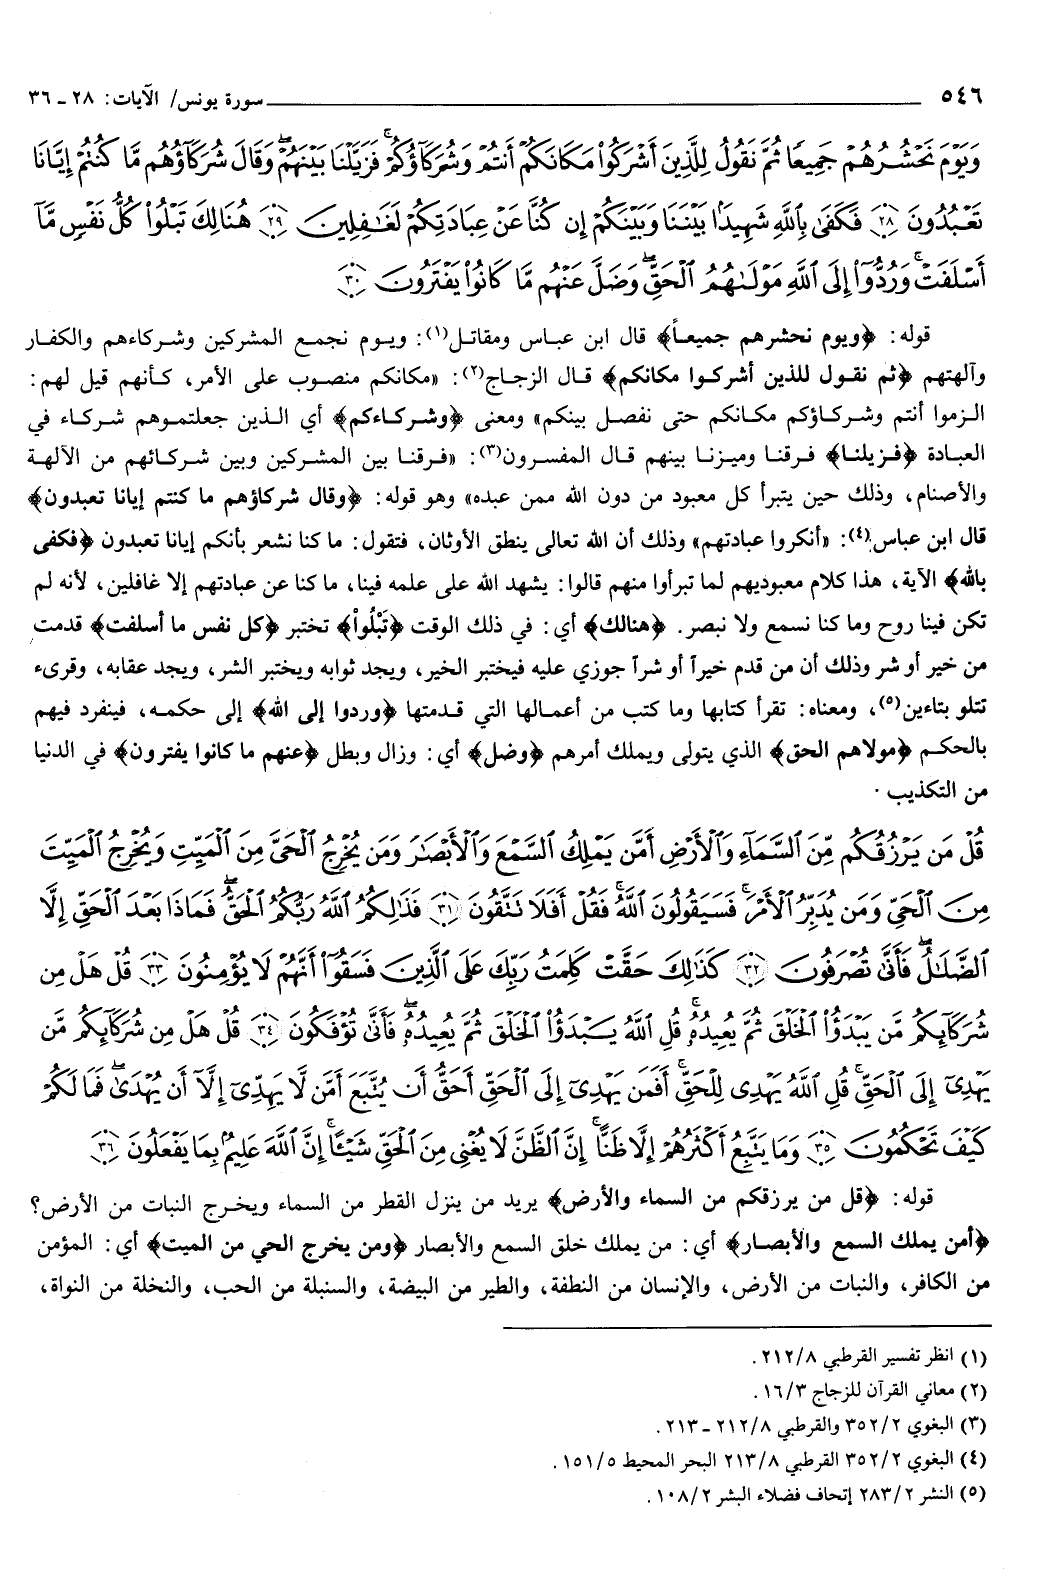 ٥٤٦ سورة يونس/ الآيات: ٢٨ ـ ٣٦
وَيَوْمَ نَحْشُرُهُمْ جَمِيعًا ثُمَّ نَقُولُ لِلَّذِينَ أَشْرَكُوا۟ مَكَانَكُمْ أَنتُمْ وَشُرَكَآؤُكُمْ ۚ فَزَيَّلْنَا بَيْنَهُمْ ۖ وَقَالَ شُرَكَآؤُهُم مَّا كُنتُمْ إِيَّانَا
تَعْبُدُونَ ﴿٢٨﴾ فَكَفَىٰ بِٱللَّهِ شَهِيدًۢا بَيْنَنَا وَبَيْنَكُمْ إِن كُنَّا عَنْ عِبَادَتِكُمْ لَغَـٰفِلِينَ ﴿٢٩﴾ هُنَالِكَ تَبْلُوا۟ كُلُّ نَفْسٍ مَّآ
أَسْلَفَتْ ۚ وَرُدُّوٓا۟ إِلَى ٱللَّهِ مَوْلَىٰهُمُ ٱلْحَقِّ ۖ وَضَلَّ عَنْهُم مَّا كَانُوا۟ يَفْتَرُونَ ﴿٣٠﴾
قوله: ﴿ويوم نحشرهم جميعاً﴾ قال ابن عباس ومقاتل(١): ويوم نجمع المشركين وشركاءهم والكفار
وآلهتهم ﴿ثم نقول للذين أشركوا مكانكم﴾ قال الزجاج(٢): «مكانكم منصوب على الأمر، كأنهم قيل لهم:
الزموا أنتم وشركاؤكم مكانكم حتى نفصل بينكم» ومعنى ﴿وشركاءكم﴾ أي الذين جعلتموهم شركاء في
العبادة ﴿فزيلنا﴾ فرقنا وميزنا بينهم قال المفسرون(٣): «فرقنا بين المشركين وبين شركائهم من الآلهة
والأصنام، وذلك حين يتبرأ كل معبود من دون الله ممن عبده» وهو قوله: ﴿وقال شركاؤهم ما كنتم إيانا تعبدون﴾
قال ابن عباس(٤): «أنكروا عبادتهم» وذلك أن الله تعالى ينطق الأوثان، فتقول: ما كنا نشعر بأنكم إيانا تعبدون ﴿فكفى
بالله﴾ الآية، هذا كلام معبوديهم لما تبرأوا منهم قالوا: يشهد الله على علمه فينا، ما كنا عن عبادتهم إلا غافلين، لأنه لم
تكن فينا روح وما كنا نسمع ولا نبصر. ﴿هنالك﴾ أي: في ذلك الوقت ﴿تَبْلُواْ﴾ تختبر ﴿كل نفس ما أسلفت﴾ قدمت
من خير أو شر وذلك أن من قدم خيراً أو شراً جوزي عليه فيختبر الخير، ويجد ثوابه ويختبر الشر، ويجد عقابه، وقرىء
تتلو بتاءين(٥)، ومعناه: تقرأ كتابها وما كتب من أعمالها التي قدمتها ﴿وردوا إلى الله﴾ إلى حكمه، فينفرد فيهم
بالحكم ﴿مولاهم الحق﴾ الذي يتولى ويملك أمرهم ﴿وضل﴾ أي: وزال وبطل ﴿عنهم ما كانوا يفترون﴾ في الدنيا
من التكذيب.
قُلْ مَن يَرْزُقُكُم مِّنَ ٱلسَّمَآءِ وَٱلْأَرْضِ أَمَّن يَمْلِكُ ٱلسَّمْعَ وَٱلْأَبْصَـٰرَ وَمَن يُخْرِجُ ٱلْحَىَّ مِنَ ٱلْمَيِّتِ وَيُخْرِجُ ٱلْمَيِّتَ
مِنَ ٱلْحَىِّ وَمَن يُدَبِّرُ ٱلْأَمْرَ ۚ فَسَيَقُولُونَ ٱللَّهُ ۚ فَقُلْ أَفَلَا تَتَّقُونَ ﴿٣١﴾ فَذَٰلِكُمُ ٱللَّهُ رَبُّكُمُ ٱلْحَقُّ ۖ فَمَاذَا بَعْدَ ٱلْحَقِّ إِلَّا
ٱلضَّلَـٰلُ ۖ فَأَنَّىٰ تُصْرَفُونَ ﴿٣٢﴾ كَذَٰلِكَ حَقَّتْ كَلِمَتُ رَبِّكَ عَلَى ٱلَّذِينَ فَسَقُوٓا۟ أَنَّهُمْ لَا يُؤْمِنُونَ ﴿٣٣﴾ قُلْ هَلْ مِن
شُرَكَآئِكُم مَّن يَبْدَؤُا۟ ٱلْخَلْقَ ثُمَّ يُعِيدُهُۥ ۚ قُلِ ٱللَّهُ يَبْدَؤُا۟ ٱلْخَلْقَ ثُمَّ يُعِيدُهُۥ ۖ فَأَنَّىٰ تُؤْفَكُونَ ﴿٣٤﴾ قُلْ هَلْ مِن شُرَكَآئِكُم مَّن
يَهْدِىٓ إِلَى ٱلْحَقِّ ۚ قُلِ ٱللَّهُ يَهْدِى لِلْحَقِّ ۗ أَفَمَن يَهْدِىٓ إِلَى ٱلْحَقِّ أَحَقُّ أَن يُتَّبَعَ أَمَّن لَّا يَهِدِّىٓ إِلَّآ أَن يُهْدَىٰ ۖ فَمَا لَكُمْ
كَيْفَ تَحْكُمُونَ ﴿٣٥﴾ وَمَا يَتَّبِعُ أَكْثَرُهُمْ إِلَّا ظَنًّا ۚ إِنَّ ٱلظَّنَّ لَا يُغْنِى مِنَ ٱلْحَقِّ شَيْـًٔا ۚ إِنَّ ٱللَّهَ عَلِيمٌۢ بِمَا يَفْعَلُونَ ﴿٣٦﴾
قوله: ﴿قل من يرزقكم من السماء والأرض﴾ يريد من ينزل القطر من السماء ويخرج النبات من الأرض؟
﴿أمن يملك السمع والأبصار﴾ أي: من يملك خلق السمع والأبصار ﴿ومن يخرج الحي من الميت﴾ أي: المؤمن
من الكافر، والنبات من الأرض، والإنسان من النطفة، والطير من البيضة، والسنبلة من الحب، والنخلة من النواة،
(١) انظر تفسير القرطبي ٢١٢/٨.
(٢) معاني القرآن للزجاج ١٦/٣.
(٣) البغوي ٣٥٢/٢ والقرطبي ٢١٢/٨ ـ ٢١٣.
(٤) البغوي ٣٥٢/٢ القرطبي ٢١٣/٨ البحر المحيط ١٥١/٥.
(٥) النشر ٢٨٣/٢ إتحاف فضلاء البشر ١٠٨/٢.